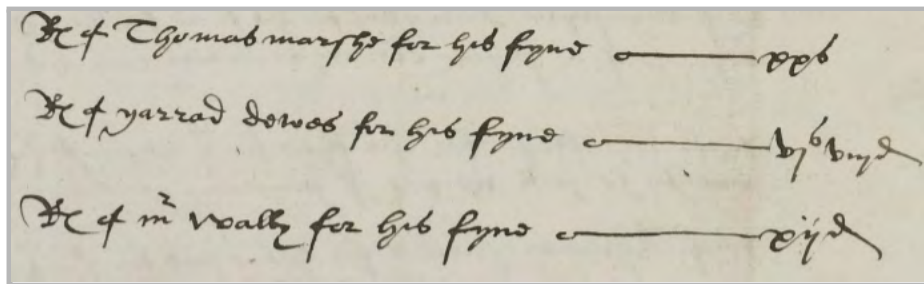 R of Thomas marshe for his fyne xxs
R of yarrad dewes for his fyne vjs viijd
R of mr wally for his fyne xijd